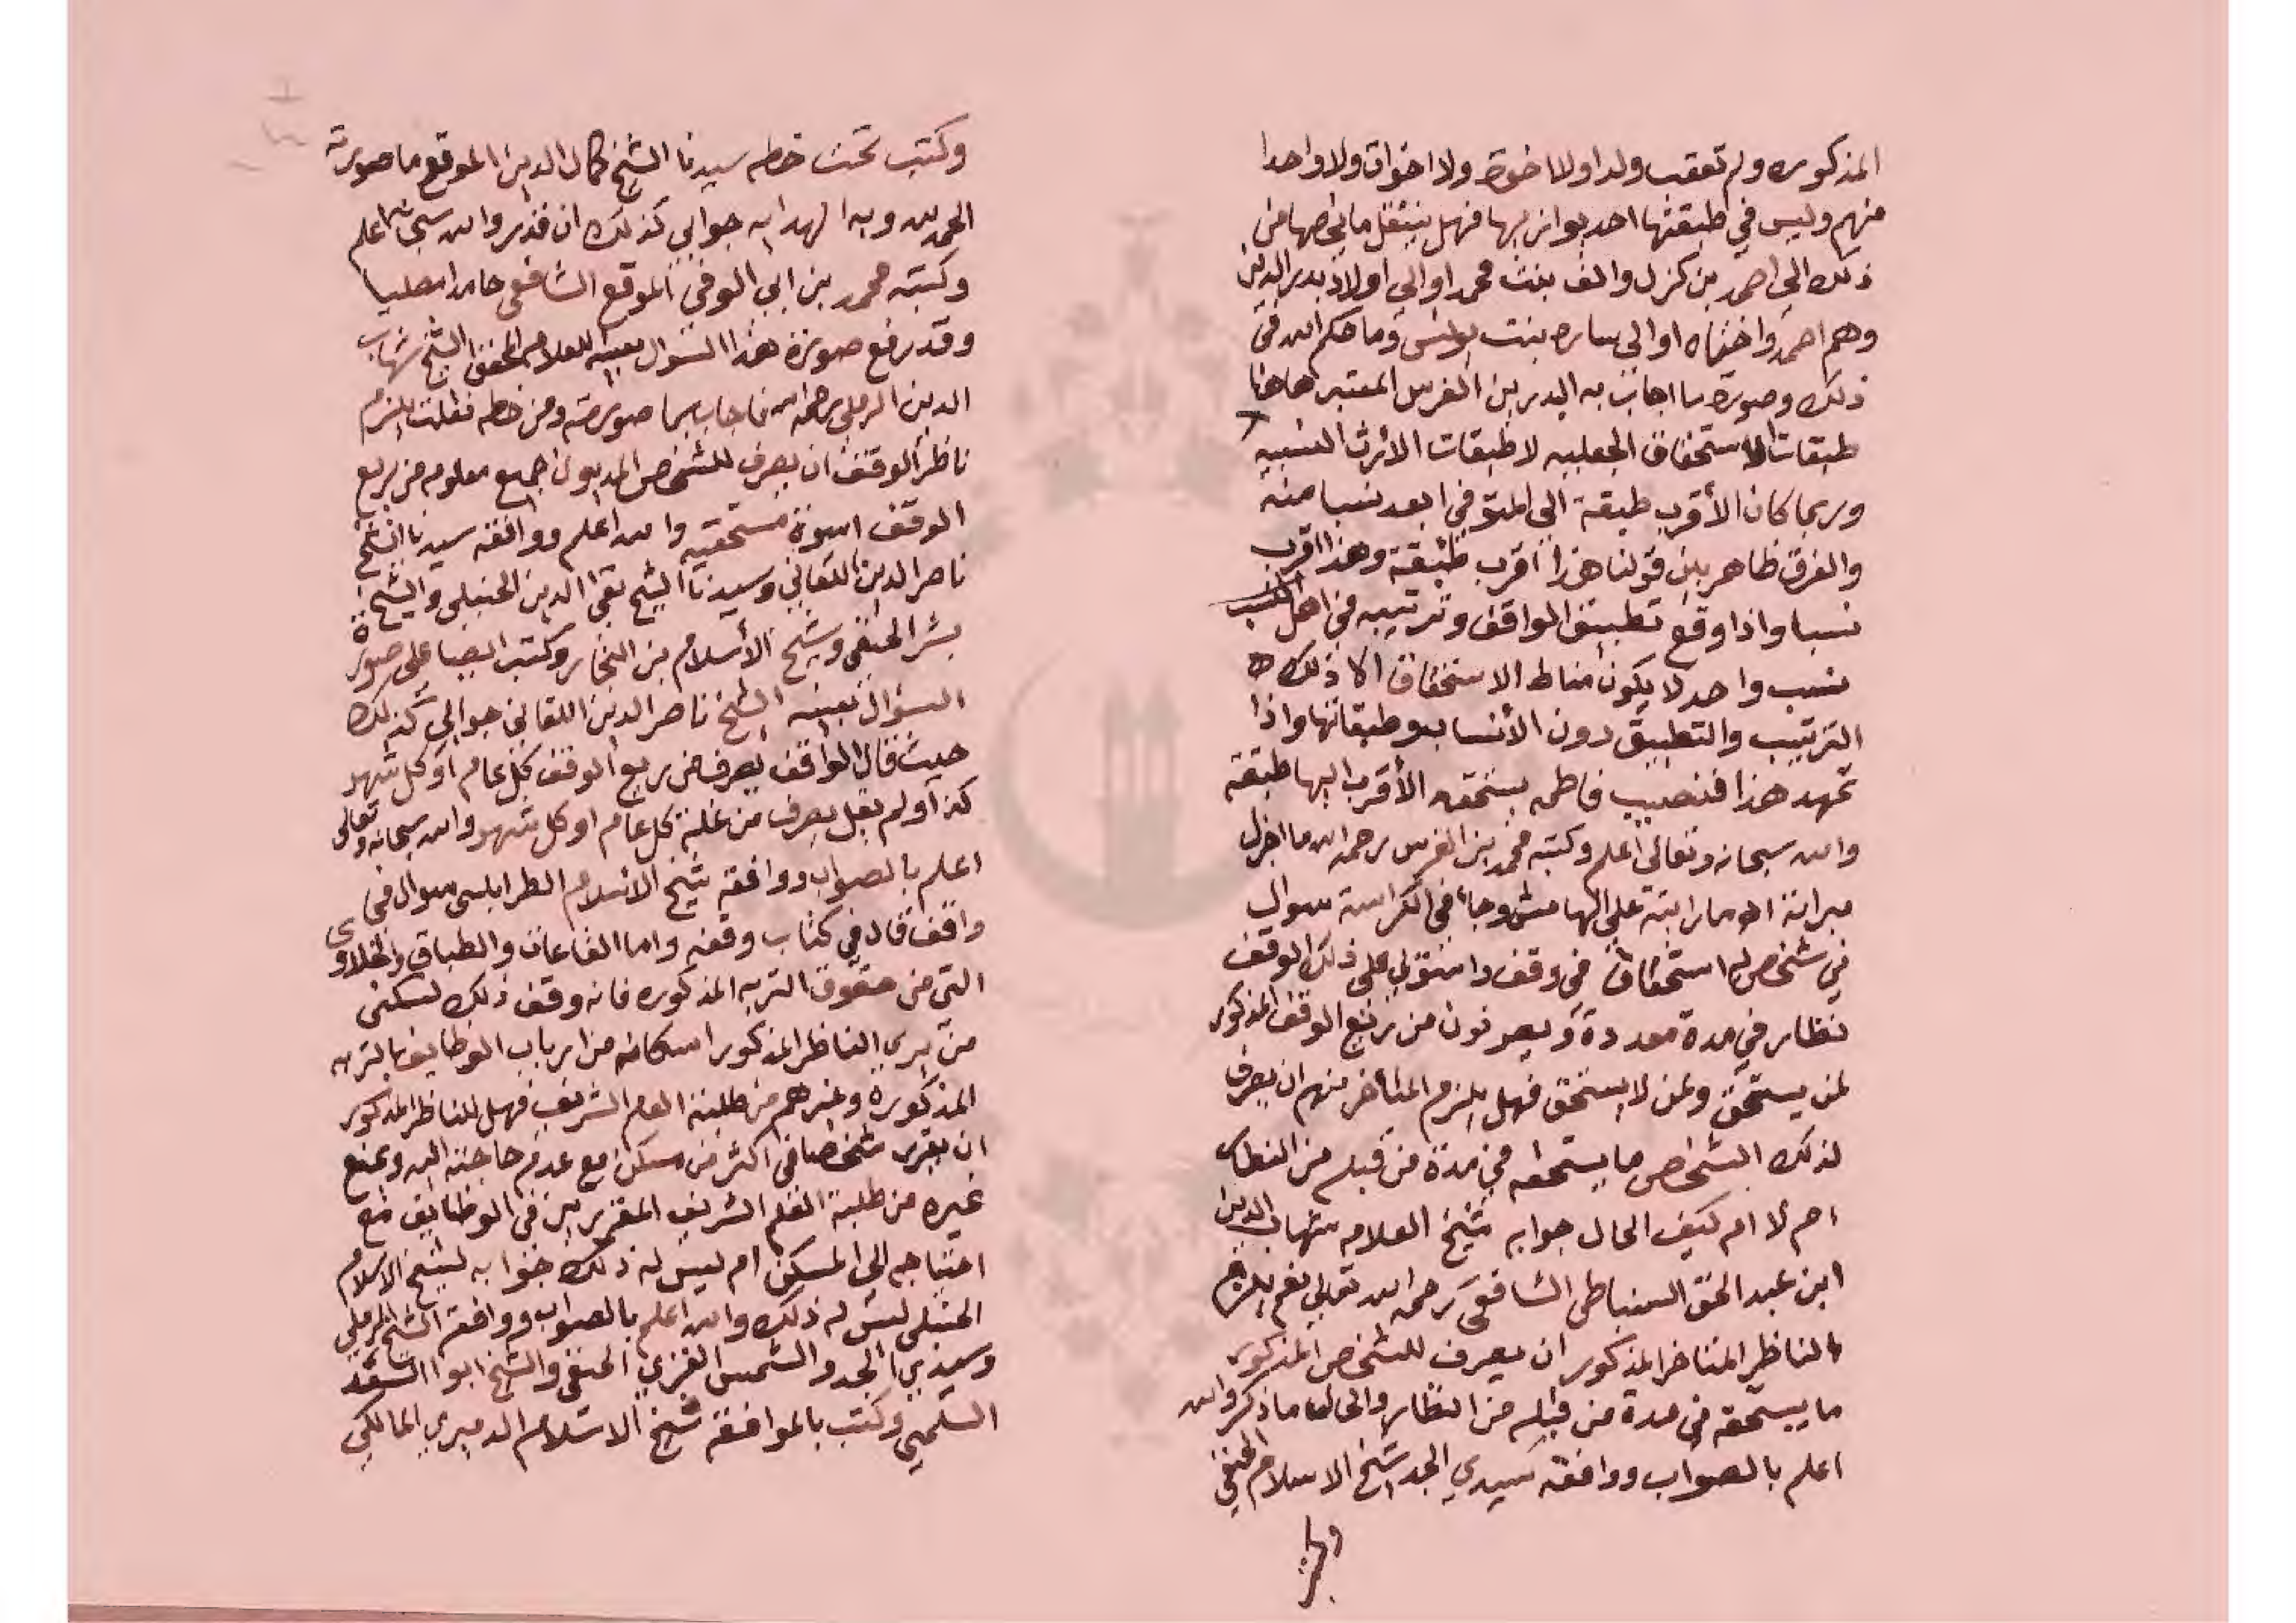 المذكوره ولم تعقب ولدا ولا اخوة ولا اخوات ولا واحدا
منهم وليس في طبقتها احد يوازيها فهل ينتقل ما يخصها من
ذلك الي احمد بن كزل والف بنت محمد او الي اولاد بدر الدين
وهم احمد واختاه او الي ساره بنت يونس وما حكم الله في
ذلك وصورة ما اجاب به البدر بن الغرس المعتبر هاهنا
طبقات الاستحقاق الجعليه لا طبقات الارث النسبيه
وربما كان الأقرب طبقة الي المتوفي ابعد نسبا منه
والفرق ظاهر بين قولنا هذا اقرب طبقة وهذا اقرب
نسبا واذا وقع تطبيق الواقف وترتيبه في اهل النسب
نسب واحد لا يكون مناط الاستحقاق الا ذلك
الترتيب والتطبيق دون الأنساب وطبقاتها واذا
تمهد هذا فنصيب فاطمه يستحقه الأقرب اليها طبقة
والله سبحانه وتعالى اعلم وكتبه محمد بن الغرس رحمه الله ما اجزل
ميراثة اه ما رايته علي الهامش وجا في الكراسة سوال
في شخص له استحقاق في وقف واستولي على ذلك الوقف
نظار في مدة معددة ويصرفون من ريع الوقف المذكور
لمن يستحق ولمن لا يستحق فهل يلزم المتأخر منهم ان يصرف
لذلك الشخص ما يستحقه في مدة من قبله من النظار
ام لا ام كيف الحال جوابه شيخ العلامه شهاب الدين
ابن عبد الحق السنباطى الشافعى رحمه الله تعالي نعم يلزم
الناظر المتاخر المذكور ان يصرف للشخص المذكور
ما يستحقه في مدة من قبله من النظار والحاله ما ذكر والله
اعلم بالصواب ووافقه سيدي الجد شيخ الاسلام الحنفي
وكتب تحت خطه سيدنا الشيخ كمال الدين الموقع ما صورته
الحمد لله وبه الهدايه جوابي كذلك ان قدر والله سبحانه اعلم
وكتبه محمد بن ابي الوفي الموقع الشافعى حامدا مصليا
وقد رفع صورة هذا السوال بعينه للعلامه المحقق الشيخ شهاب
الدين الرملى رحمه الله فاجاب بما صورته ومن خطه نقلت يلزم
ناظر الوقف ان يصرف للشخص المديون جميع معلومه من ريع
الوقف اسوة مستحقيه والله اعلم ووافقه سيدنا الشيخ
ناصر الدين اللقاني وسيدنا الشيخ تقى الدين الحنبلى والشيخ
بشر الحنفى وشيخ الأسلام بن النجار وكتب ايضا على صورة
السؤال بعينه الشيخ ناصر الدين اللقانى جوابي كذلك
حيث قال الواقف يصرف من ريع الوقف كل عام او كل شهر
كذا ولم يقل يصرف من غلة كل عام او كل شهر والله سبحانه وتعالى
اعلم بالصواب ووافقه شيخ الاسلام الطرابلسى سوال في
واقف قال في كتاب وقفه واما القاعات والطباق والخلاوى
التي من حقوق التربه المذكوره فانه وقف ذلك لسكنى
من يري الناظر المذكور اسكانه من ارباب الوظايف بالتربه
المذكورة وغيرهم من طلبة العلم الشريف فهل للناظر المذكور
ان يقرر شخصا في اكثر من مسكن مع عدم حاجته اليه ويمنع
غيره من طلبة العلم الشريف المقررين في الوظايف مع
احتياجه الي المسكن ام ليس له ذلك جوابه لشيخ الاسلام
الحنبلى ليس له ذلك والله اعلم بالصواب ووافقه الشيخ الرملي
وسيدي الجد والشمس الغزي الحنفى والشيخ ابوا السعد
السلمي وكتب بالموافقة شيخ الاسلام الدميري المالكي